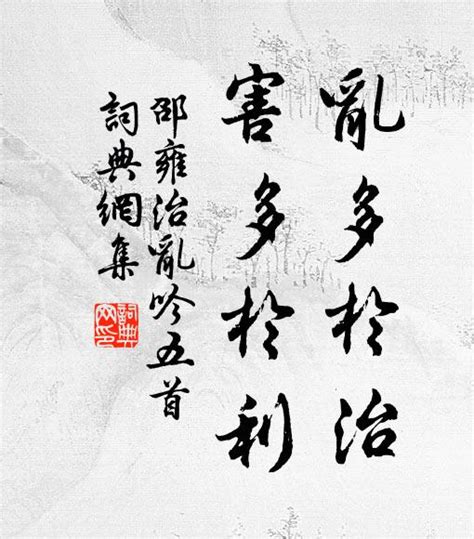 亂多於治
害多於利
邵雍治亂吟五首
詞典網集
詞典網印